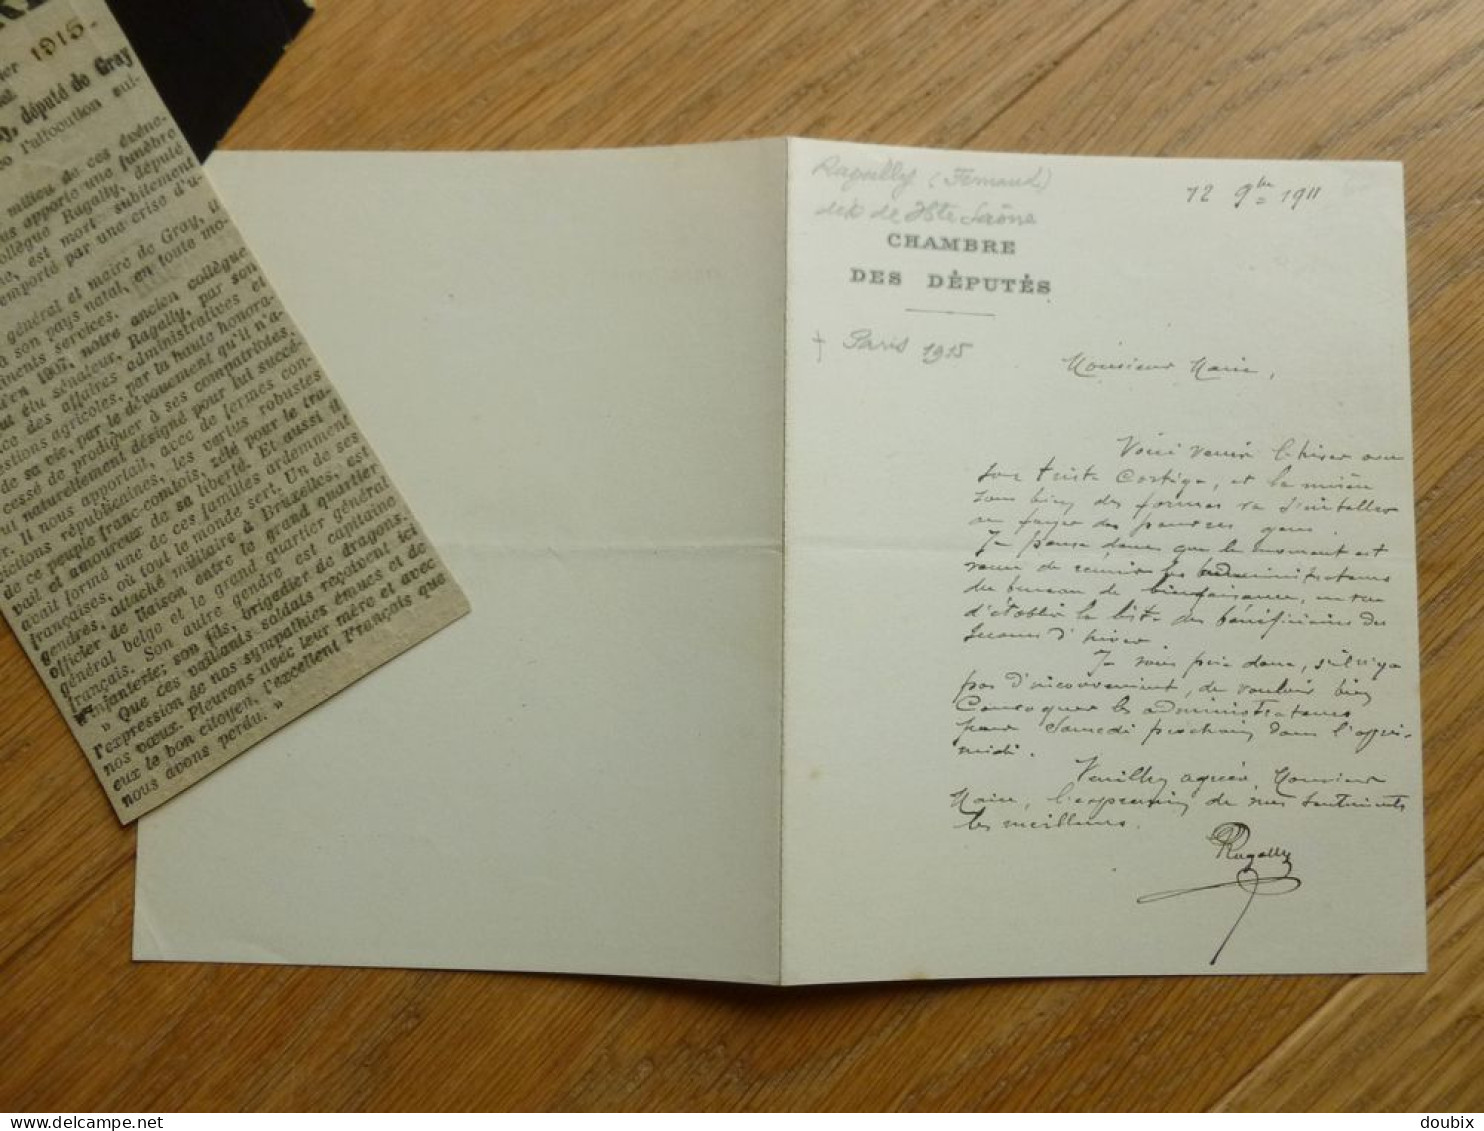 1915.
député de Gray
l'allocution sui-
milieu de ces événe-
ous apporte une funèbre
collègue Ragally, député
ne, est mort subitement
emporté par une crise d'u-
général et maire de Gray, il
à son pays natal, en toute mo-
inents services.
d'en 1907, notre ancien collègue
ut élu sénateur, Ragally, par son
ce des affaires administratives et
estions agricoles, par la haute honora-
de sa vie, par le dévouement qu'il n'a-
cessé de prodiguer à ses compatriotes,
ut naturellement désigné pour lui succé-
r. Il nous apportait, avec de fermes con-
ictions républicaines, les vertus robustes
de ce peuple franc-comtois, zélé pour le tra-
vail et amoureux de sa liberté. Et aussi il
avait formé une de ces familles ardemment
françaises, où tout le monde sert. Un de ses
gendres, attaché militaire à Bruxelles, est
officier de liaison entre le grand quartier
général belge et le grand quartier général
français. Son autre gendre est capitaine
d'infanterie; son fils, brigadier de dragons.
» Que ces vaillants soldats reçoivent ici
l'expression de nos sympathies émues et de
nos vœux. Pleurons avec leur mère et avec
eux le bon citoyen, l'excellent Français que
nous avons perdu. »
Ragally (Fernand)
dép de Hte Saône
CHAMBRE
DES DÉPUTÉS
+ Paris 1915
12 9bre 1911
Monsieur Maire,
Voici venir l'hiver avec
son triste cortège, et la misère
sous bien des formes va s'installer
au foyer des pauvres gens.
Je pense donc que le moment est
venu de réunir les administrateurs
du bureau de bienfaisance, en vue
d'établir la liste des bénéficiaires des
secours d'hiver
Je vous prie donc, s'il n'y a
pas d'inconvénient, de vouloir bien
convoquer les administrateurs
pour Samedi prochain dans l'après-
midi.
Veuillez agréer, Monsieur
Maire, l'expression de mes sentiments
les meilleurs.
Ragally
delcampe.net
doubix